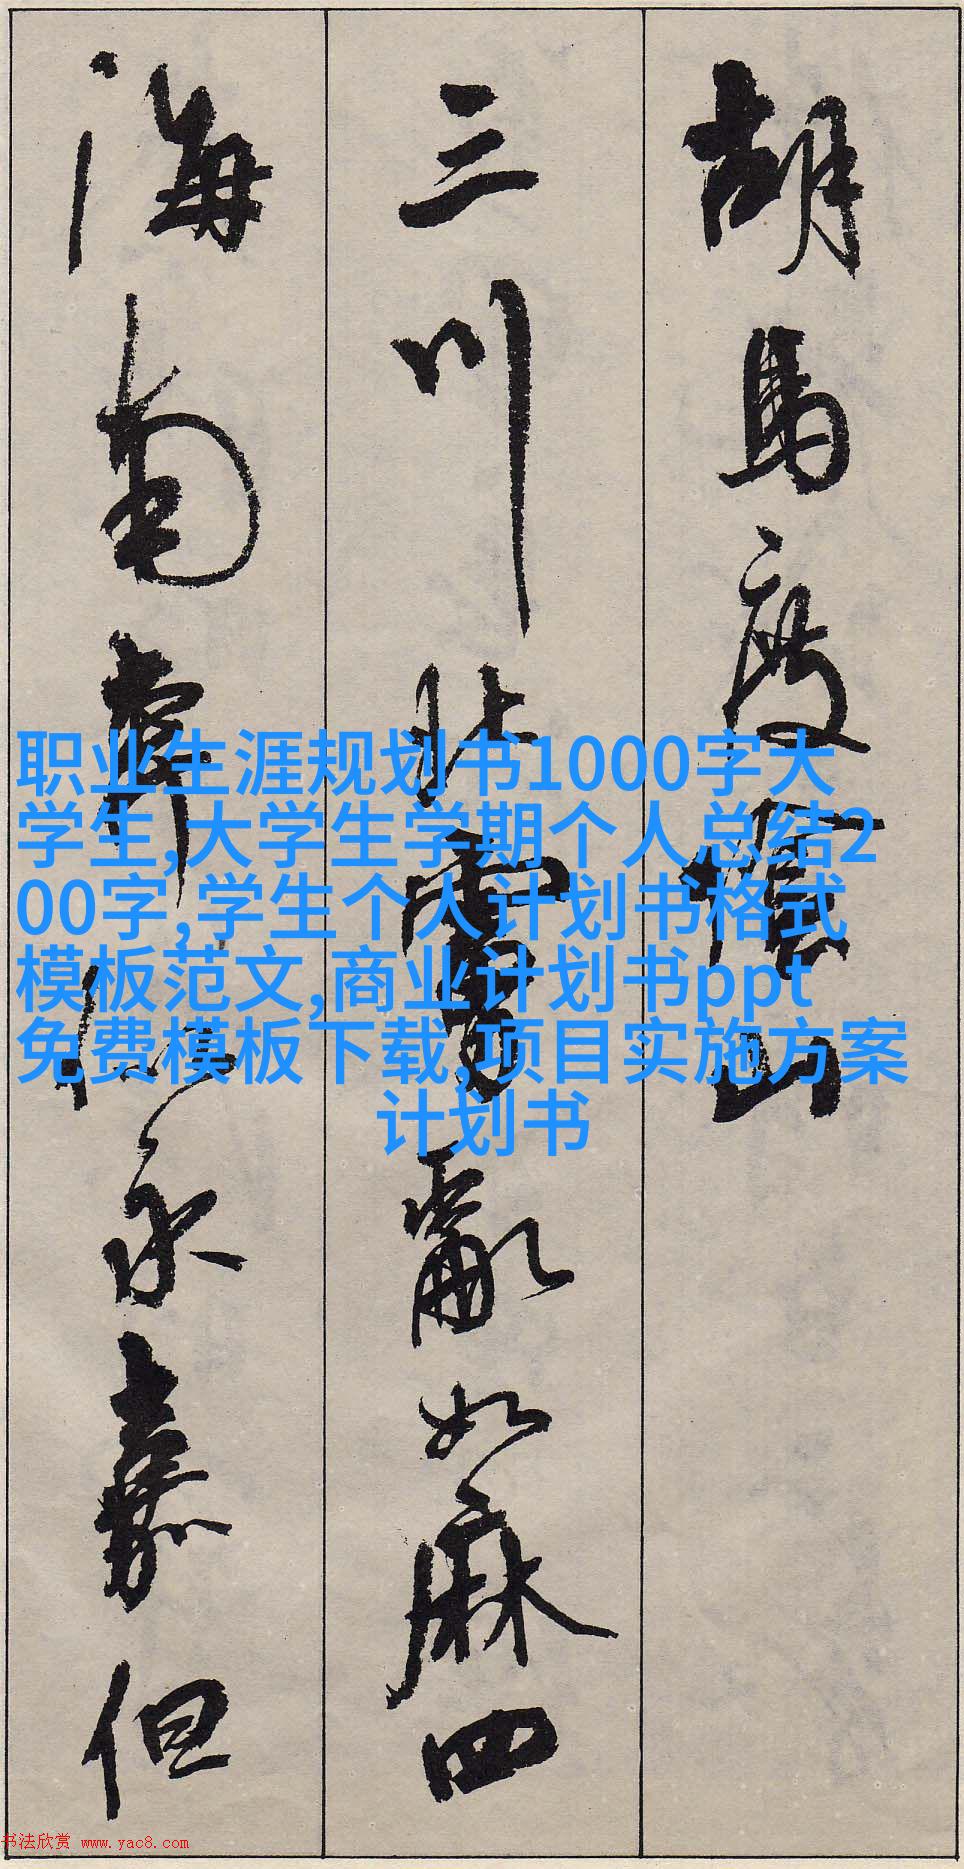 胡馬度陰山
三川北虜亂如麻四
海南奔似永嘉但
职业生涯规划书1000字大
学生,大学生学期个人总结2
00字,学生个人计划书格式
模板范文,商业计划书ppt
免费模板下载,项目实施方案
计划书
书法欣赏 www.yac8.com